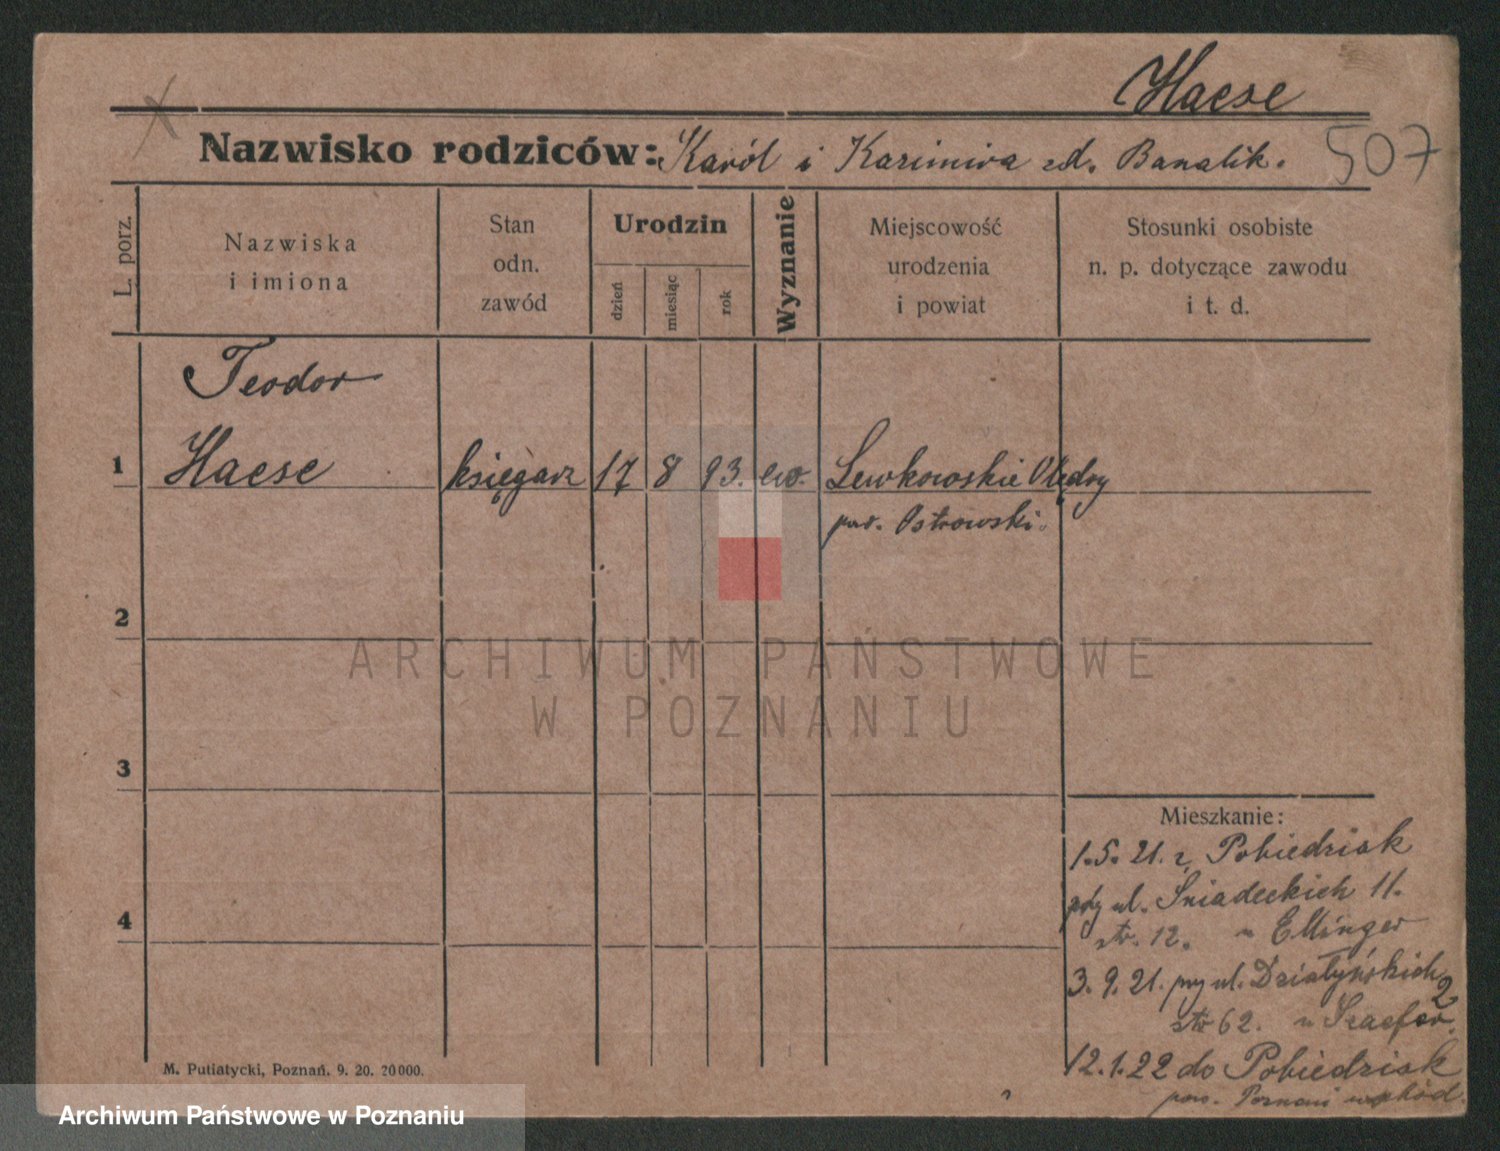 Haese
Nazwisko rodziców: Karól i Kazimira zd. Banalik.
507
L. porz.
Nazwiska
i imiona
Stan
odn.
zawód
Urodzin
dzień
miesiąc
rok
Wyznanie
Miejscowość
urodzenia
i powiat
Stosunki osobiste
n. p. dotyczące zawodu
i t. d.
Teodor
1 Haese księgarz 17 8 93. ew. Lewkowskie Olędry
pow. Ostrowski.
2
ARCHIWUM PAŃSTWOWE
W POZNANIU
3
Mieszkanie:
1.5.21. z Pobiedzisk
przy ul. Śniadeckich 11.
4
str. 12. u Ellinger
3.9.21. przy ul. Działyńskich 2
str 62. u Szaefer.
12.1.22 do Pobiedzisk
pow. Poznań wschód.
M. Putiatycki, Poznań. 9. 20. 20000.
Archiwum Państwowe w Poznaniu